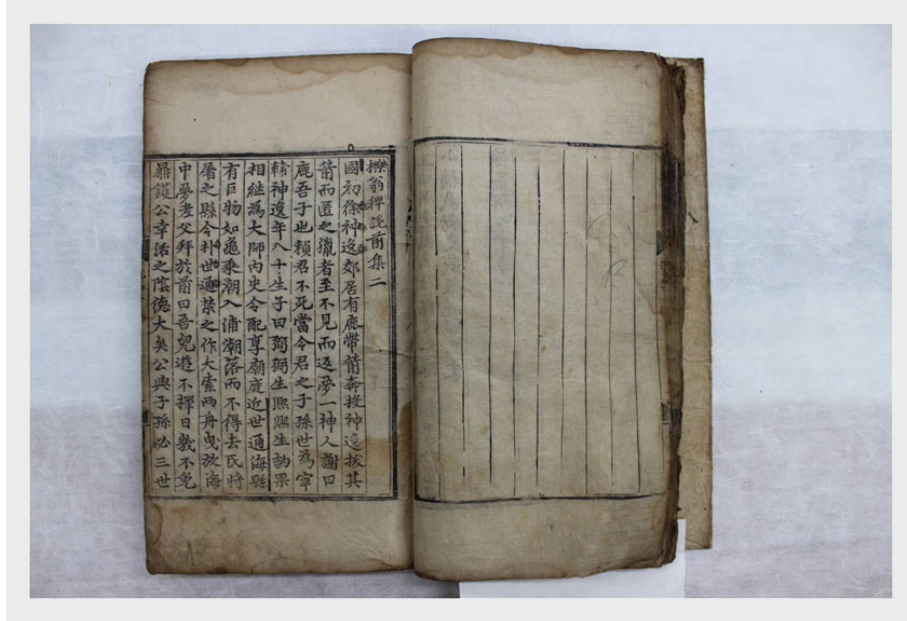 櫟翁稗說前集二
國初徐神逸郊居有鹿帶箭奔投神逸拔其
箭而匿之獵者至不見而返夢一神人謝曰
鹿吾子也賴君不死當令君之子孫世爲宰
輔神逸年八十生子曰弼弼生熈熈生訥果
相継爲大師內史令配享廟庭近世通海縣
有巨物如龜乘潮入浦潮落而不得去民將
屠之縣令朴世通禁之作大索兩舟曳放海
中夢老父拜於前曰吾兒遊不擇日幾不免
鼎鑊公幸活之陰德大矣公與子孫必三世